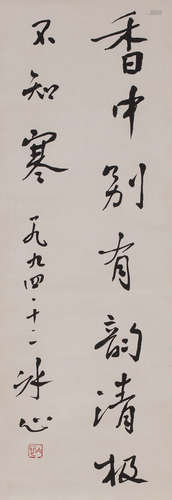 香中别有韵清极
不知寒
一九九四·十二 冰心